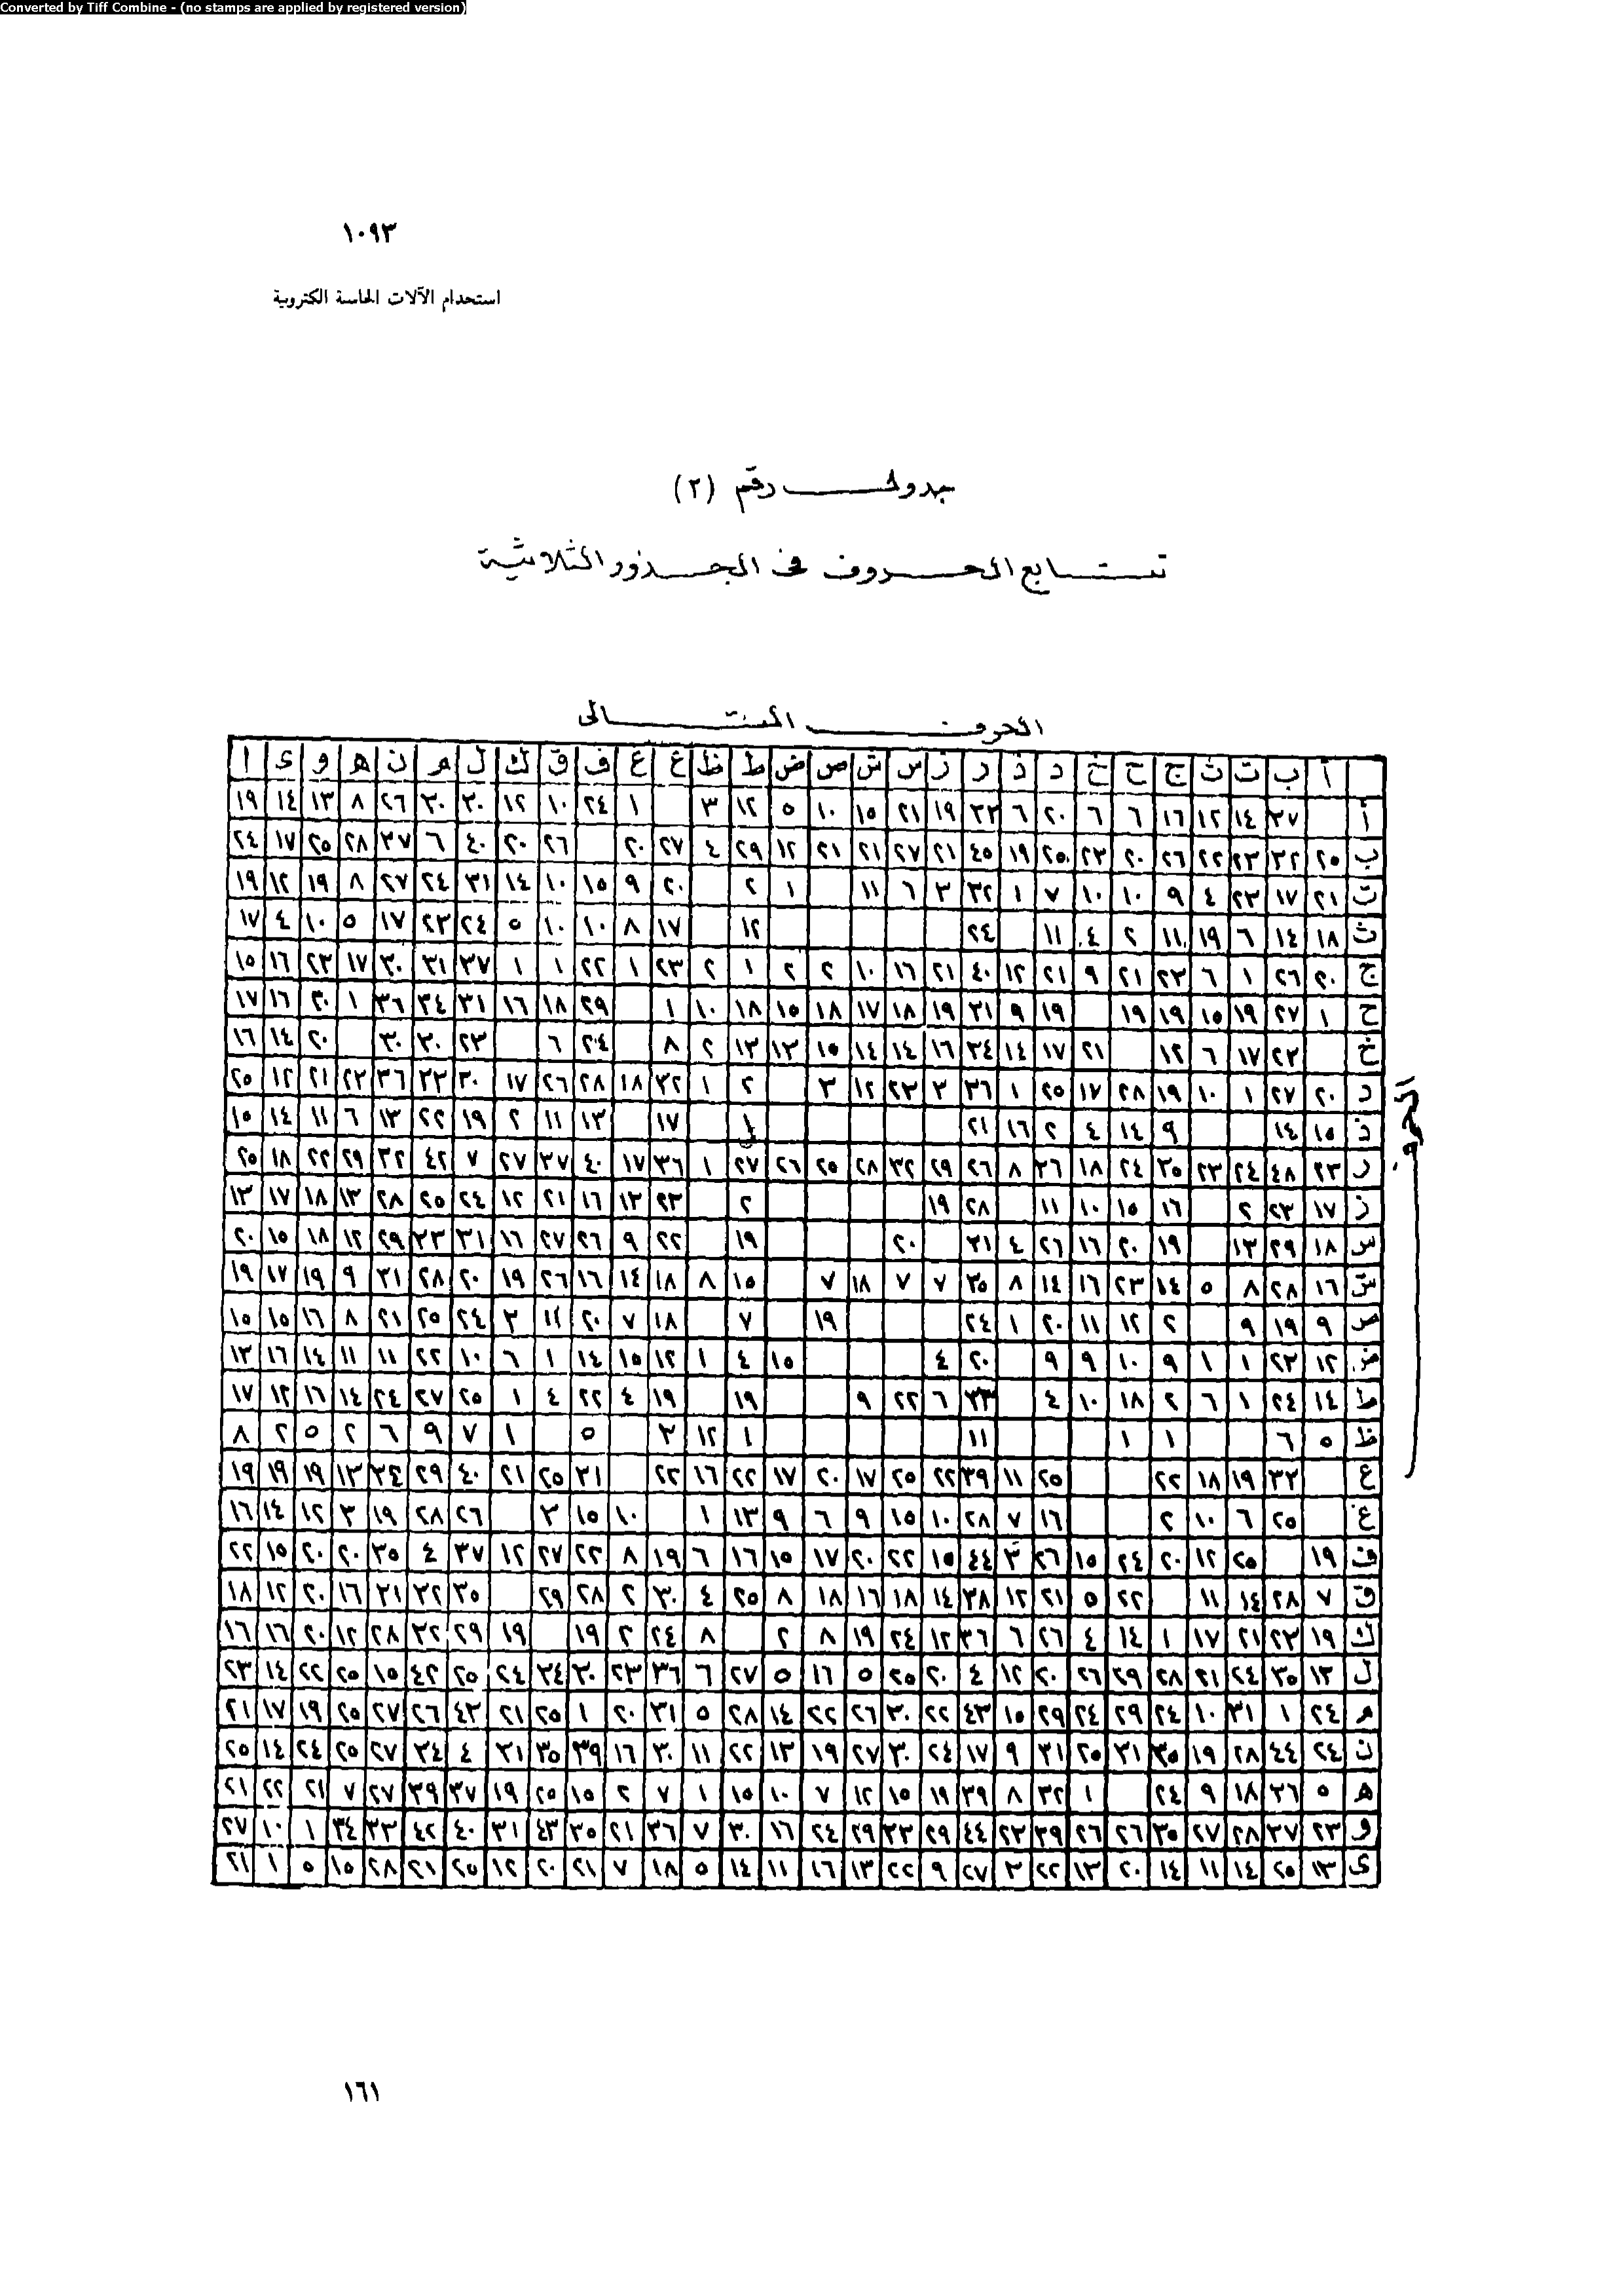 Converted by Tiff Combine - (no stamps are applied by registered version)
١٠٩٣
استحدام الآلات الحاسة الكتروبية
جدول رقم (٢)
تتابع الحروف فى الجذور الثلاثية
الحرف التالى
أ ب ت ث ج ح خ د ذ ر ز س ش ص ض ط ظ ع غ ف ق ك ل م ن ه و ى ا
أ ٢٧ ١٤ ١٢ ١٦ ٦ ٦ ٢٠ ٦ ٢٣ ١٩ ٢١ ١٥ ١٠ ٥ ١٢ ٣ ١ ٢٤ ١٠ ١٢ ٣٠ ٣٠ ٢٦ ٨ ١٣ ١٤ ١٩
ب ٢٥ ٣٢ ٢٣ ٢٢ ٢٦ ٢٠ ٢٣ ٢٥ ١٩ ٤٥ ٢١ ٢٧ ٢١ ٢١ ١٢ ٢٩ ٤ ٢٧ ٢٠ ٢٦ ٢٠ ٤٠ ٦ ٣٧ ٢٨ ٢٥ ١٧ ٢٤
ت ٢١ ١٧ ٢٣ ٤ ٩ ١٠ ١٠ ٧ ١ ٣٢ ٣ ٦ ١١ ١ ٢ ٢٠ ٩ ١٥ ١٠ ١٤ ٣١ ٢٤ ٢٧ ٨ ١٩ ١٢ ١٩
ث ١٨ ١٤ ٦ ١٩ ١١ ٢ ٤ ١١ ٢٤ ١٢ ١٧ ٨ ١٠ ١٠ ٥ ٢٤ ٢٣ ١٧ ٥ ١٠ ٤ ١٧
ج ٢٠ ٢٦ ١ ٦ ٢٣ ٢١ ٩ ٢١ ١٢ ٤٠ ٢١ ١٦ ١٠ ٢ ٢ ١ ٢ ٢٣ ١ ٢٢ ١ ١ ٣٧ ٣١ ٣٠ ١٧ ٢٣ ١٦ ١٥
ح ١ ٢٧ ١٩ ١٥ ١٩ ١٩ ١٩ ٩ ٣١ ١٩ ١٨ ١٧ ١٨ ١٥ ١٨ ١٠ ١ ٢٩ ١٨ ١٦ ٣١ ٣٤ ٣٦ ١ ٣٠ ١٦ ١٧
خ ٢٢ ١٧ ٦ ١٢ ٢١ ١٧ ١٤ ٣٤ ١٦ ١٤ ١٤ ١٥ ١٣ ١٣ ٢ ٨ ٢٤ ٦ ٢٣ ٣٠ ٣٠ ٢٠ ١٤ ١٦
د ٢٠ ٢٧ ١ ١٠ ١٩ ٢٨ ١٧ ٢٥ ١ ٣٦ ٣ ٢٣ ١٢ ٣ ٢ ١ ٣٢ ١٨ ٢٨ ٢٦ ١٧ ٣٠ ٣٣ ٣٦ ٢٢ ٢١ ١٢ ٢٥
ذ ١٥ ١٤ ٩ ١٤ ٤ ٢ ١٦ ٢١ ١ ١٧ ١٣ ١١ ٢ ١٩ ٢٢ ١٣ ٦ ١١ ١٤ ١٥
ر ٢٣ ٤٨ ٢٤ ٢٣ ٣٥ ٢٤ ١٨ ٣٦ ٨ ٢٦ ٢٩ ٣٢ ٢٨ ٢٥ ٢٦ ٢٧ ١ ٣٦ ١٧ ٤٠ ٣٧ ٢٧ ٧ ٤٢ ٣٢ ٢٩ ٢٢ ١٨ ٢٥
ز ١٧ ٢٣ ٢ ١٦ ١٥ ١٠ ١١ ٢٨ ١٩ ٢ ٢٣ ١٣ ١٦ ٢١ ١٢ ٢٤ ٢٥ ٢٨ ١٣ ١٨ ١٧ ١٣
س ١٨ ٢٩ ١٣ ١٩ ٢٠ ١٦ ٢٦ ٤ ٣١ ٢٠ ١٩ ٢٢ ٩ ٢٦ ٢٧ ١٦ ٣١ ٣٣ ٢٩ ١٢ ١٨ ١٥ ٢٠
ش ١٦ ٢٨ ٨ ٥ ١٤ ٢٣ ١٦ ١٤ ٨ ٣٥ ٧ ٧ ١٨ ٧ ١٥ ٨ ١٨ ١٤ ١٦ ٢٦ ١٩ ٢٠ ٢٨ ٣١ ٩ ١٩ ١٧ ١٩
ص ٩ ١٩ ٩ ٢ ١٢ ١١ ٢٠ ١ ٢٤ ١٩ ٧ ١٨ ٧ ٢٠ ١١ ٣ ٢٤ ٢٥ ٢١ ٨ ١٦ ١٥ ١٥
ض ١٢ ٢٢ ١ ١ ٩ ١٠ ٩ ٩ ٢٠ ٤ ١٥ ٤ ١ ١٢ ١٥ ١٤ ١ ٦ ١٠ ٢٢ ١١ ١١ ١٤ ١٦ ١٣
ط ١٤ ٢٤ ١ ٦ ٢ ١٨ ١٠ ٤ ٣٣ ٦ ٢٢ ٩ ١٩ ١٩ ٤ ٢٢ ٤ ١ ٢٥ ٢٧ ٢٤ ١٤ ١٦ ١٢ ١٧
ظ ٥ ٦ ١ ١ ١١ ١ ١٢ ٣ ٥ ١ ٧ ٩ ٦ ٢ ٥ ٢ ٨
ع ٣٢ ١٩ ١٨ ٢٢ ٢٥ ١١ ٣٩ ٢٢ ٢٥ ١٧ ٢٠ ١٧ ٢٢ ١٦ ٢٢ ٣١ ٢٥ ٢١ ٤٠ ٢٩ ٣٤ ١٣ ١٩ ١٩ ١٩
غ ٢٥ ٦ ١٠ ٢ ١٦ ٧ ٢٨ ١٠ ١٥ ٩ ٦ ٩ ١٣ ١ ١٠ ١٥ ٣ ٢٦ ٢٨ ١٩ ٣ ١٢ ١٤ ١٦
ف ١٩ ٢٥ ١٢ ٢٠ ٢٤ ١٥ ٢٦ ٣ ٤٤ ١٥ ٢٢ ٢٠ ١٧ ١٥ ١٦ ٦ ١٩ ٨ ٢٢ ٢٧ ١٢ ٣٧ ٤ ٣٥ ٢٠ ٢٠ ١٥ ٢٢
ق ٧ ٢٨ ١٤ ١١ ٢٢ ٥ ٢١ ١٢ ٣٨ ١٤ ١٨ ١٦ ١٨ ٨ ٢٥ ٤ ٣٠ ٢ ٢٨ ٢٩ ٣٥ ٣٢ ٣١ ١٦ ٢٠ ١٢ ١٨
ك ١٩ ٢٣ ٢١ ١٧ ١ ١٤ ٤ ٢٦ ٦ ٣٦ ١٢ ٢٤ ١٩ ٨ ٢ ٨ ٢٤ ٢ ١٩ ١٩ ٢٩ ٣٢ ٢٨ ١٢ ٢٠ ١٦ ١٦
ل ١٣ ٣٥ ٢٤ ٢١ ٢٨ ٢٩ ٢٦ ٢٠ ١٢ ٤ ٢٠ ٢٥ ٥ ١٦ ٥ ٢٧ ٦ ٣٦ ٢٣ ٣٠ ٣٤ ٢٤ ٢٥ ٤٢ ١٥ ٢٥ ٢٢ ١٤ ٢٣
م ٢٤ ١ ٣١ ١٠ ٢٤ ٢٩ ٢٤ ٢٩ ١٥ ٤٣ ٢٢ ٣٠ ٢٦ ٢٢ ١٤ ٢٨ ٥ ٣١ ٢٠ ١ ٢٥ ٢١ ٤٣ ٢٦ ٢٧ ٢٥ ١٩ ١٧ ٢١
ن ٢٤ ٤٤ ٢٨ ١٩ ٣٥ ٣١ ٢٥ ٣١ ٩ ١٧ ٢٤ ٣٠ ٢٧ ١٩ ١٣ ٢٢ ١١ ٣٠ ١٦ ٣٩ ٣٥ ٣١ ٤ ٣٤ ٢٧ ٢٥ ٢٤ ١٤ ٢٥
ه ٥ ٢٦ ١٨ ٩ ٢٤ ١ ٣٢ ٨ ٣٩ ١٩ ١٥ ١٢ ٧ ١٠ ١٥ ١ ٧ ٢ ١٥ ٢٥ ١٩ ٣٧ ٣٩ ٢٧ ٧ ٢١ ٢٢ ٢١
و ٢٣ ٣٧ ٢٨ ٢٧ ٣٥ ٢٦ ٢٦ ٣٩ ٢٣ ٤٤ ٢٩ ٣٣ ٢٩ ٢٤ ١٦ ٣٠ ٧ ٣٦ ٢١ ٣٥ ٤٣ ٣١ ٤٠ ٤٢ ٣٣ ٣٤ ١ ١٠ ٢٧
ى ١٣ ٢٥ ١٤ ١١ ١٤ ٢٠ ١٣ ٢٢ ٣ ٢٧ ٩ ٢٢ ١٣ ١٦ ١١ ١٤ ٥ ١٨ ٧ ٢١ ٢٠ ١٢ ٢٥ ٢١ ٢٨ ١٥ ٥ ١ ٢١
١٦١